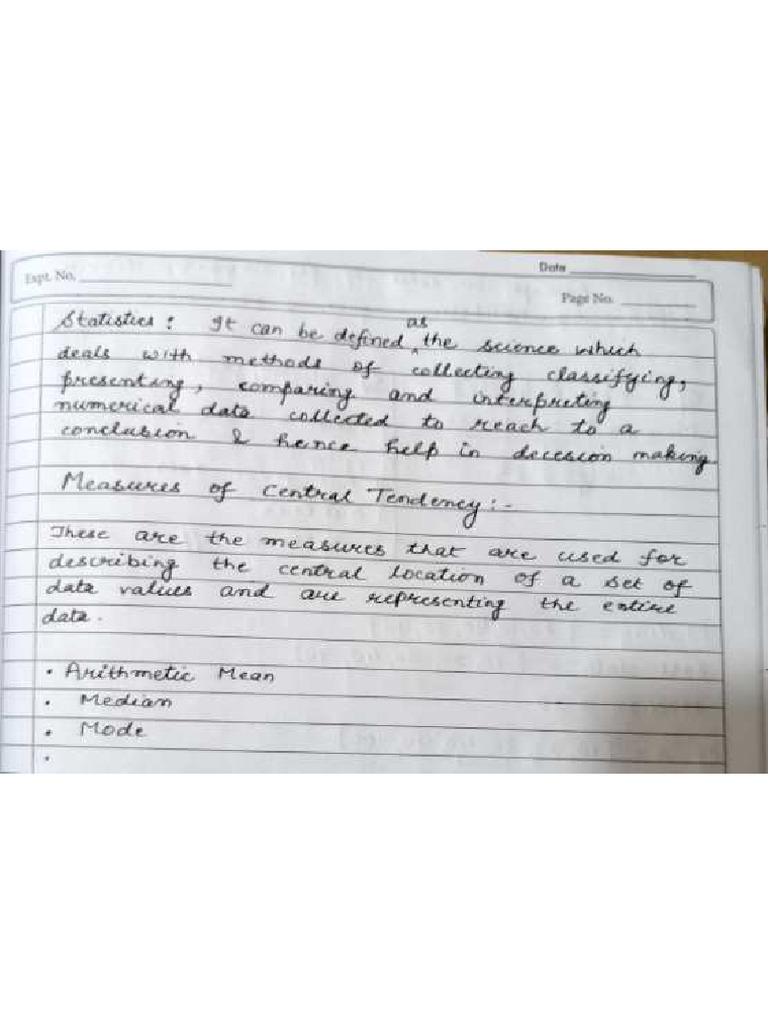 Date
Expt. No.
Page No.
Statistics : It can be defined as the science which
deals with methods of collecting classifying,
presenting, comparing and interpreting
numerical data collected to reach to a
conclusion & hence help in decesion making
Measures of Central Tendency :-
These are the measures that are used for
describing the central location of a set of
data values and are representing the entire
data.
• Arithmetic Mean
• Median
• Mode
•